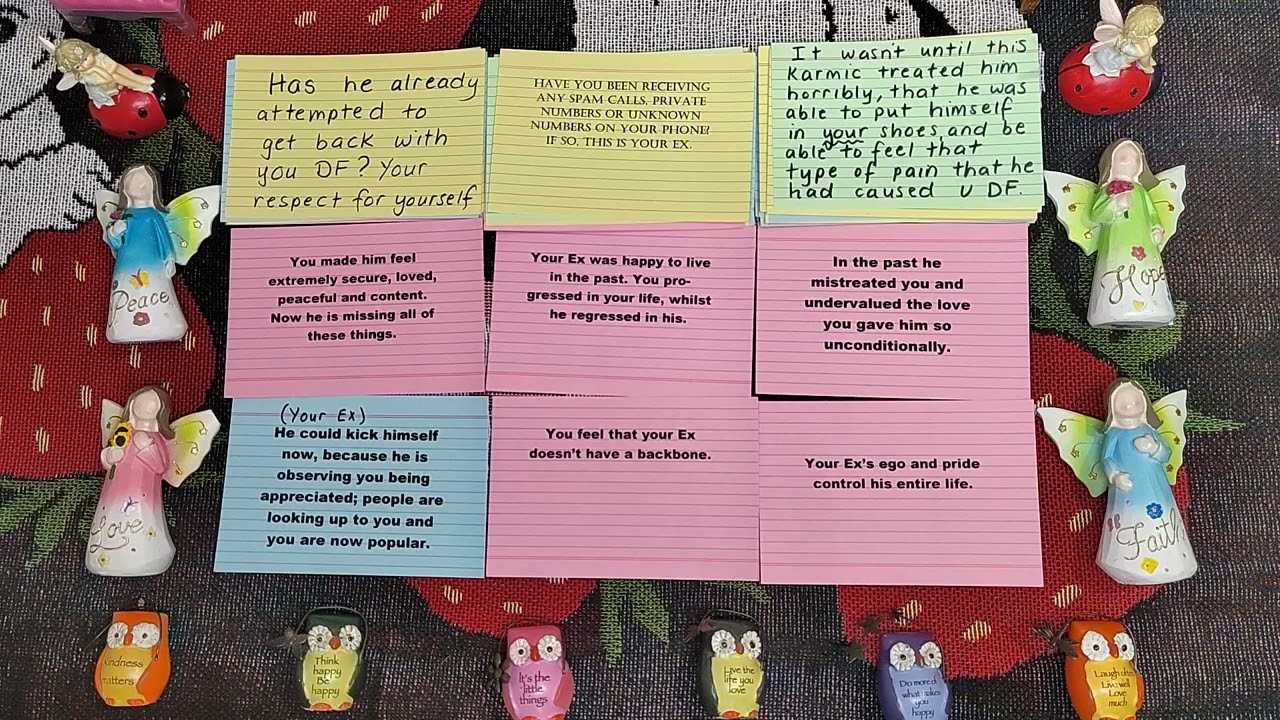 Has he already
attempted to
get back with
you DF? Your
respect for yourself
HAVE YOU BEEN RECEIVING
ANY SPAM CALLS, PRIVATE
NUMBERS OR UNKNOWN
NUMBERS ON YOUR PHONE?
IF SO, THIS IS YOUR EX.
It wasn't until this
Karmic treated him
horribly, that he was
able to put himself
in your shoes, and be
able to feel that
type of pain that he
had caused U DF.
You made him feel
extremely secure, loved,
peaceful and content.
Now he is missing all of
these things.
Your Ex was happy to live
in the past. You pro-
gressed in your life, whilst
he regressed in his.
In the past he
mistreated you and
undervalued the love
you gave him so
unconditionally.
(Your Ex)
He could kick himself
now, because he is
observing you being
appreciated; people are
looking up to you and
you are now popular.
You feel that your Ex
doesn't have a backbone.
Your Ex's ego and pride
control his entire life.
Peace
Hope
Love
Faith
Kindness
matters
Think
happy
Be
happy
It's the
little
things
Live the
life you
love
Do more of
what makes
you
happy
Laugh often
Live well
Love
much